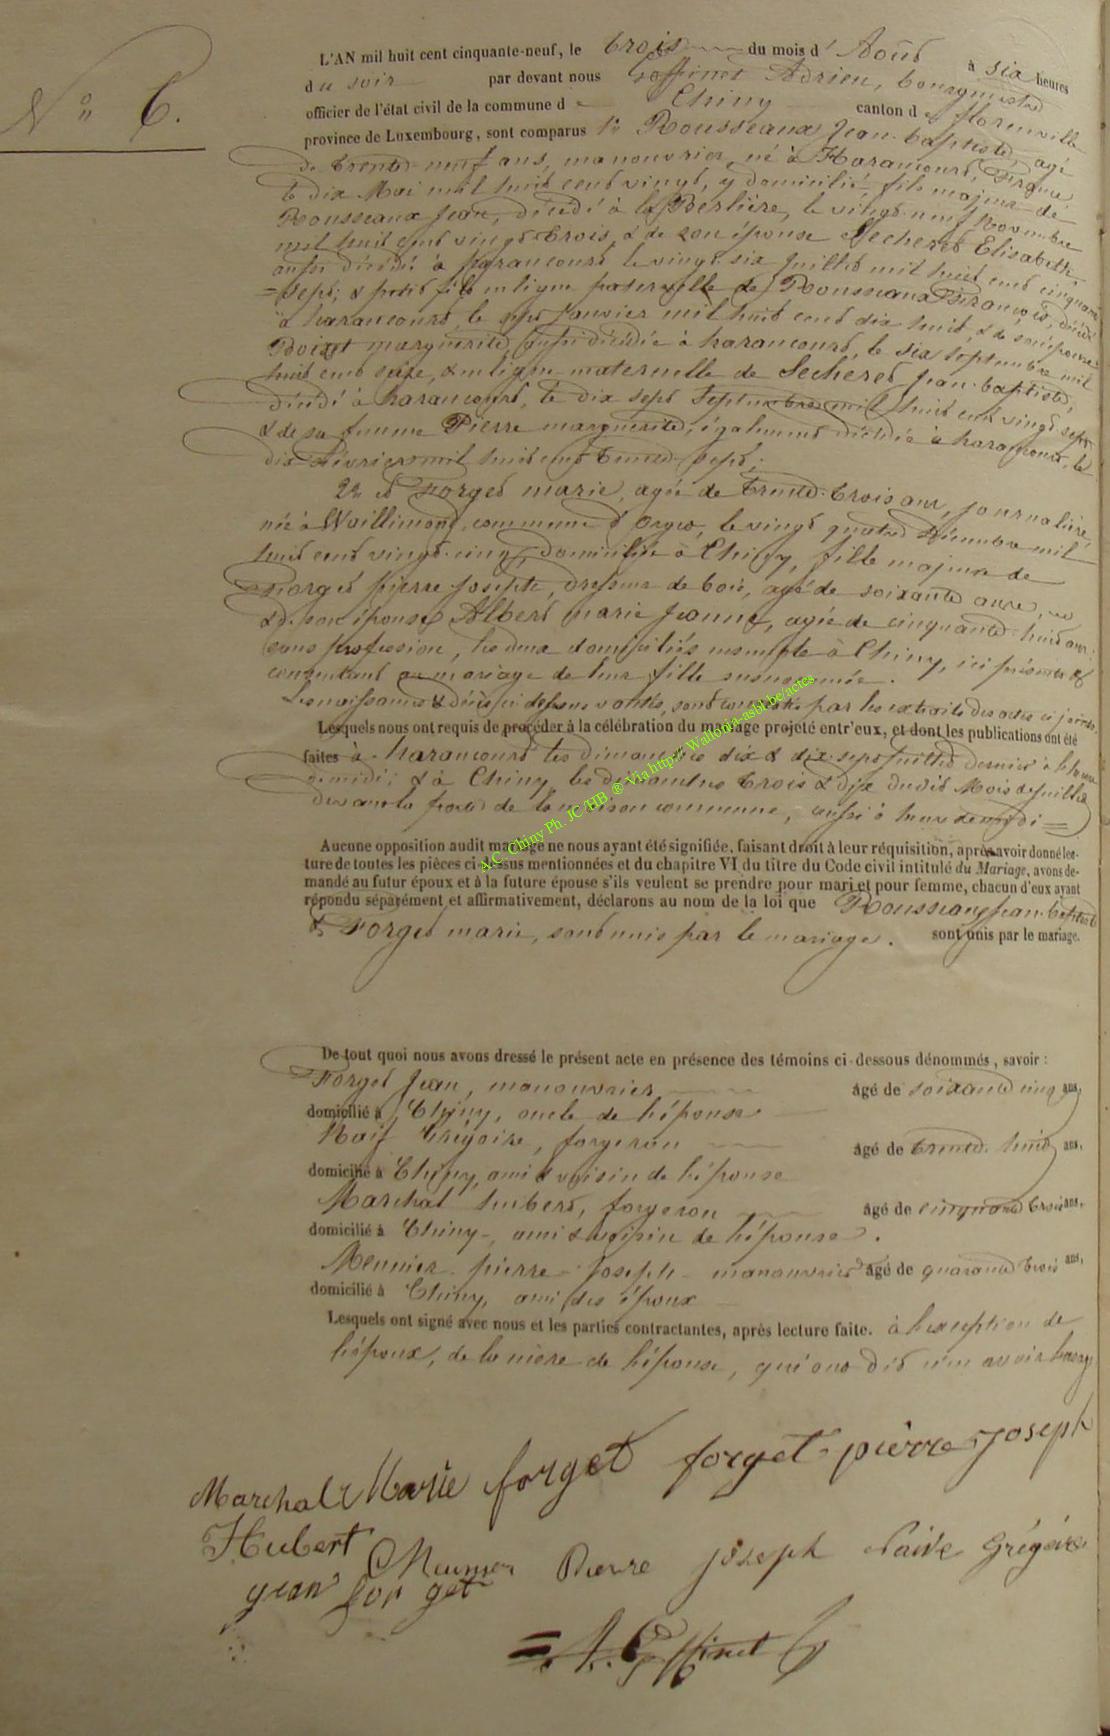 N° 6.
L'AN mil huit cent cinquante-neuf, le trois du mois d'Août à six heures
du soir par devant nous Goffinet Adrien, bourgmestre
officier de l'état civil de la commune de Chiny canton de florenville
province de Luxembourg, sont comparus 1° Rousseaux Jean-baptiste, agé
de trente-neuf ans, manouvrier, né à Harancourt, France,
le dix Mai mil huit cent vingt, y domicilié, fils majeur de
Rousseaux Jean, décédé à la Berlière, le vingt-neuf Novembre
mil huit cent vingt trois, & de son épouse Secheret Elisabeth
aussi décédée à harancourt le vingt six juillet mil huit cent cinquante
=sept; & petit fils en ligne paternelle de Rousseaux François, décédé
à harancourt, le janvier mil huit cent dix huit, & de son épouse
marguerite, aussi décédée à harancourt, le six septembre mil
huit cent seize, & en ligne maternelle de Secheret Jean-baptiste,
décédé à harancourt, le dix sept septembre mil huit cent vingt sept
& de sa femme Pierre marguerite, également décédée à harancourt, le
dix février mil huit cent trente sept;
2° et Forget marie, agée de trente-trois ans, journalière,
née à Waillimont, commune d'orgeo, le vingt quatre Décembre mil
huit cent vingt-cinq, domiciliée à Chiny, fille majeure de
Forget pierre joseph, dresseur de bois, agé de soixante onze,
& de son épouse Albert marie Jeanne, agée de cinquante-huit ans,
sans profession, les deux domiciliés ensemble à Chiny, ici présents &
consentant au mariage de leur fille susnommée.
Les naissances & décès ci dessus sont constatés par les extraits des actes ci joints,
Lesquels nous ont requis de procéder à la célébration du mariage projeté entr'eux, et dont les publications ont été
faites à harancourt les dimanches dix & dix-sept juillet dernier à
de midi; & à Chiny, les dimanches trois & dix dudit Mois de juillet
devant la porte de la maison commune, aussi à heure de midi =
Aucune opposition audit mariage ne nous ayant été signifiée, faisant droit à leur réquisition, après avoir donné lec-
ture de toutes les pièces ci-dessus mentionnées et du chapitre VI du titre du Code civil intitulé du Mariage, avons de-
mandé au futur époux et à la future épouse s'ils veulent se prendre pour mari et pour femme, chacun d'eux ayant
répondu séparément et affirmativement, déclarons au nom de la loi que Rousseaux Jean-baptiste
& Forget marie, sont unis par le mariage. sont unis par le mariage.
De tout quoi nous avons dressé le présent acte en présence des témoins ci-dessous dénommés, savoir :
Forget Jean, manouvrier âgé de soixante cinq ans,
domicilié à Chiny, oncle de l'épouse
Naif Grégoire, forgeron âgé de trente-huit ans,
domicilié à Chiny, ami & voisin de l'épouse
Marchal hubert, forgeron âgé de cinquante trois ans,
domicilié à Chiny, ami & voisin de l'épouse.
Meunier pierre-Joseph manouvrier âgé de quarante trois ans,
domicilié à Chiny, ami des époux
Lesquels ont signé avec nous et les parties contractantes, après lecture faite. à l'exception de
l'époux, de la mère de l'épouse, qui ont dit n'en avoir l'usage
Marchal Marie forget forget pierre Joseph
Hubert Meunier Pierre joseph Naive Grégoire
jean for get
A. Goffinet
A.C. Chiny Ph. JC/HB. ® Via http:// Wallonia-asbl.be/actes